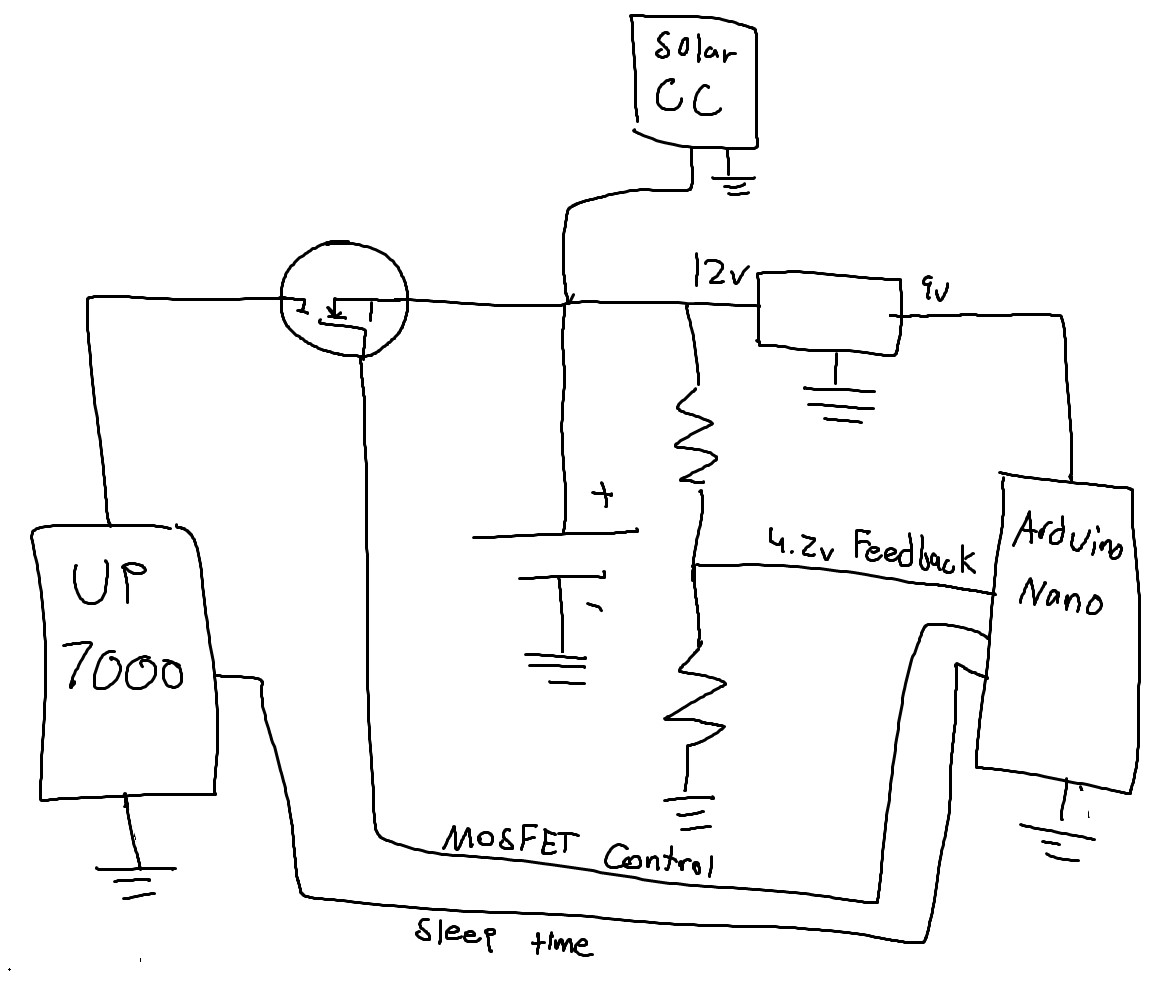 Solar
CC
12v
9v
+
-
4.2v Feedback
Arduino
Nano
UP
7000
MOSFET Control
Sleep time